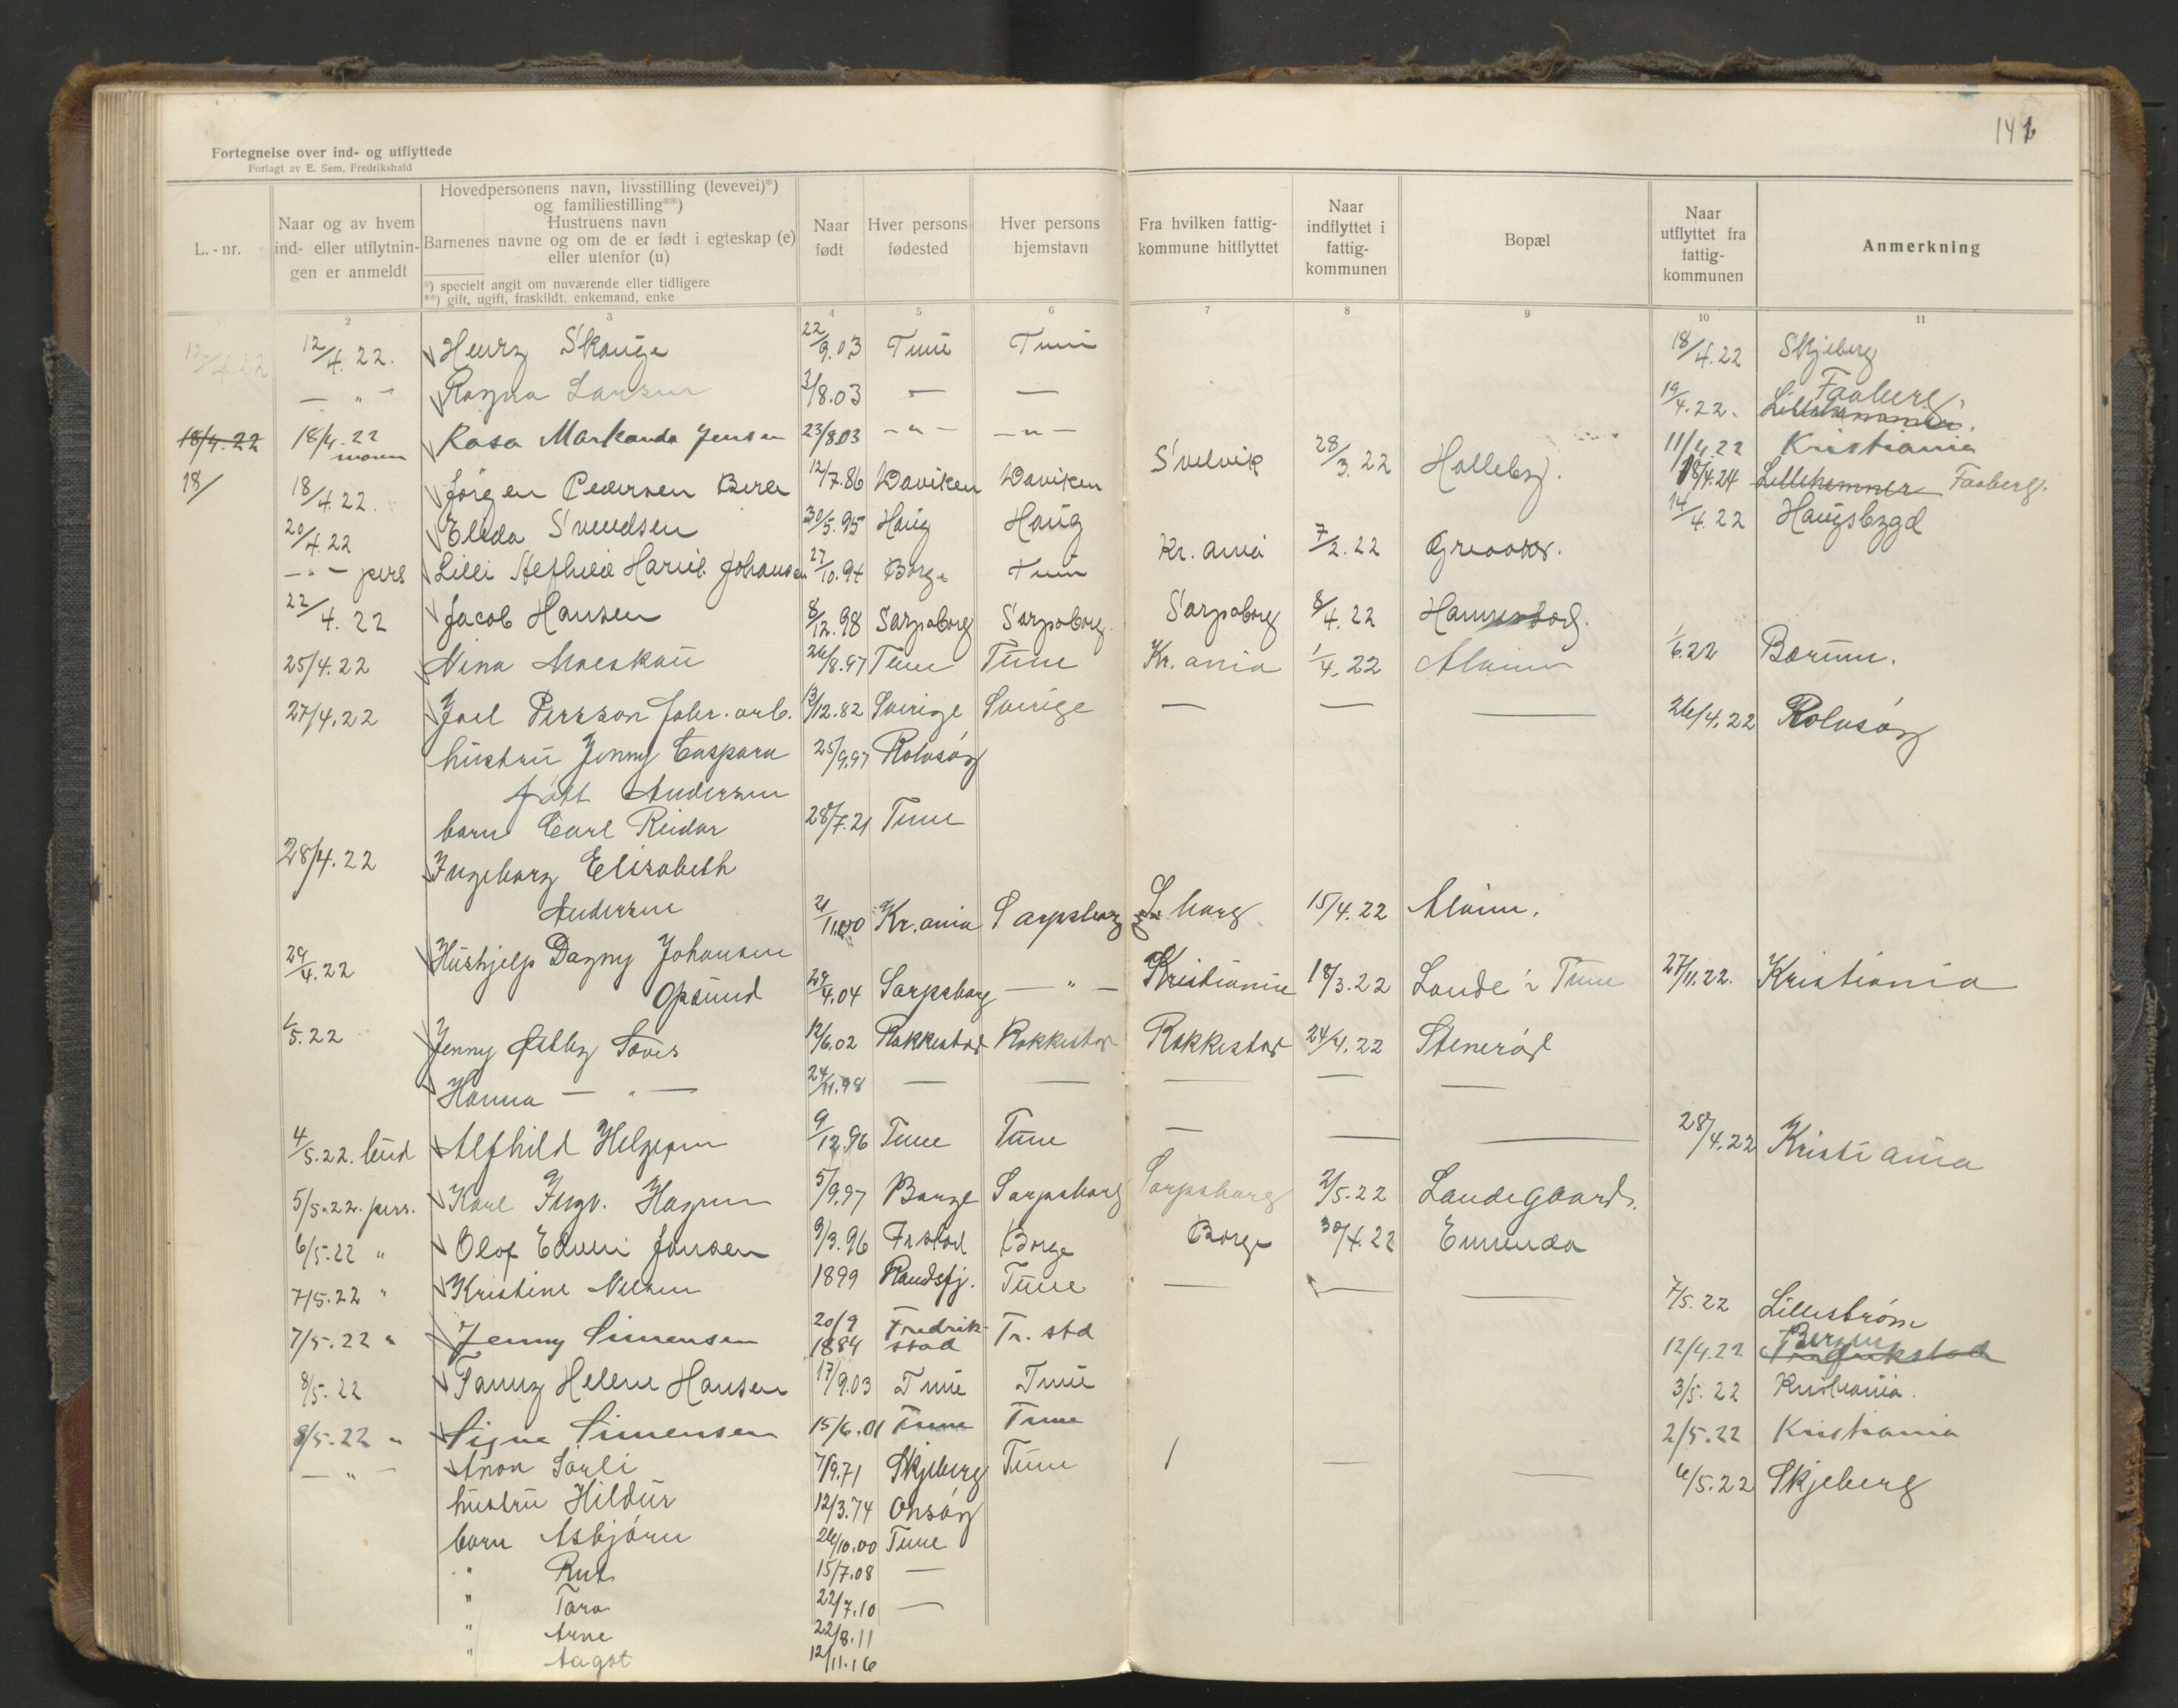 141
Fortegnelse over ind- og utflyttede
Forlagt av E. Sem, Fredrikshald
L.-nr.
Naar og av hvem
ind- eller utflytnin-
gen er anmeldt
Hovedpersonens navn, livsstilling (levevei)*)
og familiestilling**)
Hustruens navn
Barnenes navne og om de er født i egteskap (e)
eller utenfor (u)
*) specielt angit om nuværende eller tidligere
**) gift, ugift, fraskildt, enkemand, enke
Naar
født
Hver persons
fødested
Hver persons
hjemstavn
Fra hvilken fattig-
kommune hitflyttet
Naar
indflyttet i
fattig-
kommunen
Bopæl
Naar
utflyttet fra
fattig-
kommunen
Anmerkning
2 3 4 5 6 7 8 9 10 11
12/4.22 12/4.22. Henry Skauge 22/9.03 Tune Tune 18/4.22 Skjeberg
— " — Ragna Larsen 3/8.03 — — 19/4.22. Lillehammer. Faaberg.
18/4.22 18/4.22 Rosa Jensen 23/8.03 — " — — " — 11/4.22 Kristiania
18/ 18/4.22. Jörgen Pedersen 12/7.86 Daviken Daviken Svelvik 28/3.22 Halleby. 18/4.24 Lillehammer Faaberg.
20/4.22 Elida Svendsen 30/5.95 Haug Haug 14/4.22 Haugsbygd
— " — pers Lilli Johansen 27/10.94 Borge Tune Kr.ania 7/2.22 Greaaker.
22/4.22 Jacob Hansen 8/12.98 Sarpsborg Sarpsborg. Sarpsborg 8/4.22
25/4.22 Nina 26/8.97 Tune Tune Kr.ania 1/4.22 Alvim 1/6.22 Bærum.
27/4.22 Joel Persson fabr. arb. 13/12.82 Sverige Sverige — — — 26/4.22 Rolvsöy
hustru Jenny Caspara 25/9.97 Rolvsöy
født Andersen
barn Carl Reidar 28/7.21 Tune
28/4.22 Ingeborg Elisabeth
Andersen 21/11.00 Kr.ania Sarpsborg S.borg 15/4.22 Alvim.
29/4.22 Hushjelp Dagny Johansen
Opsund 29/4.04 Sarpsborg — " — Kristiania 18/3.22 Lande i Tune 27/11.22. Kristiania
1/5.22 Jenny Østby 12/6.02 Rakkestad Rakkestad Rakkestad 24/4.22 Stenerød
Hanna — " — 24/11.98 — — — — —
4/5.22. bud Alfhild Helgesen 9/12.96 Tune Tune — — — 28/4.22 Kristiania
5/5.22. pers. Karl Ingv. Hagen 5/9.97 Borge Sarpsborg Sarpsborg 2/5.22 Landegaard.
6/5.22 " Olof Jansen 9/3.96 Fr.stad Borge Borge 30/4.22
7/5.22 " Kristine Nilsen 1899 Randsfj. Tune — — — 7/5.22 Lillestrøm
7/5.22 " Jenny Simensen 20/9 1884 Fredrik-
stad Fr. std 12/4.22 Bergen Fredrikstad
8/5.22 Fanny Helene Hansen 17/9.03 Tune Tune 3/5.22 Kristiania.
8/5.22 " Signe Simensen 15/6.01 Tune Tune 2/5.22 Kristiania
— " — Anon Sørli 7/9.71 Skjeberg Tune / — — 6/5.22 Skjeberg
hustru Hildur 12/3.74 Onsøy
barn Asbjørn 26/10.00 Tune
" Rut 15/7.08 —
" Tora 22/7.10 —
" Arne 22/8.11
" Aagot 12/11.16